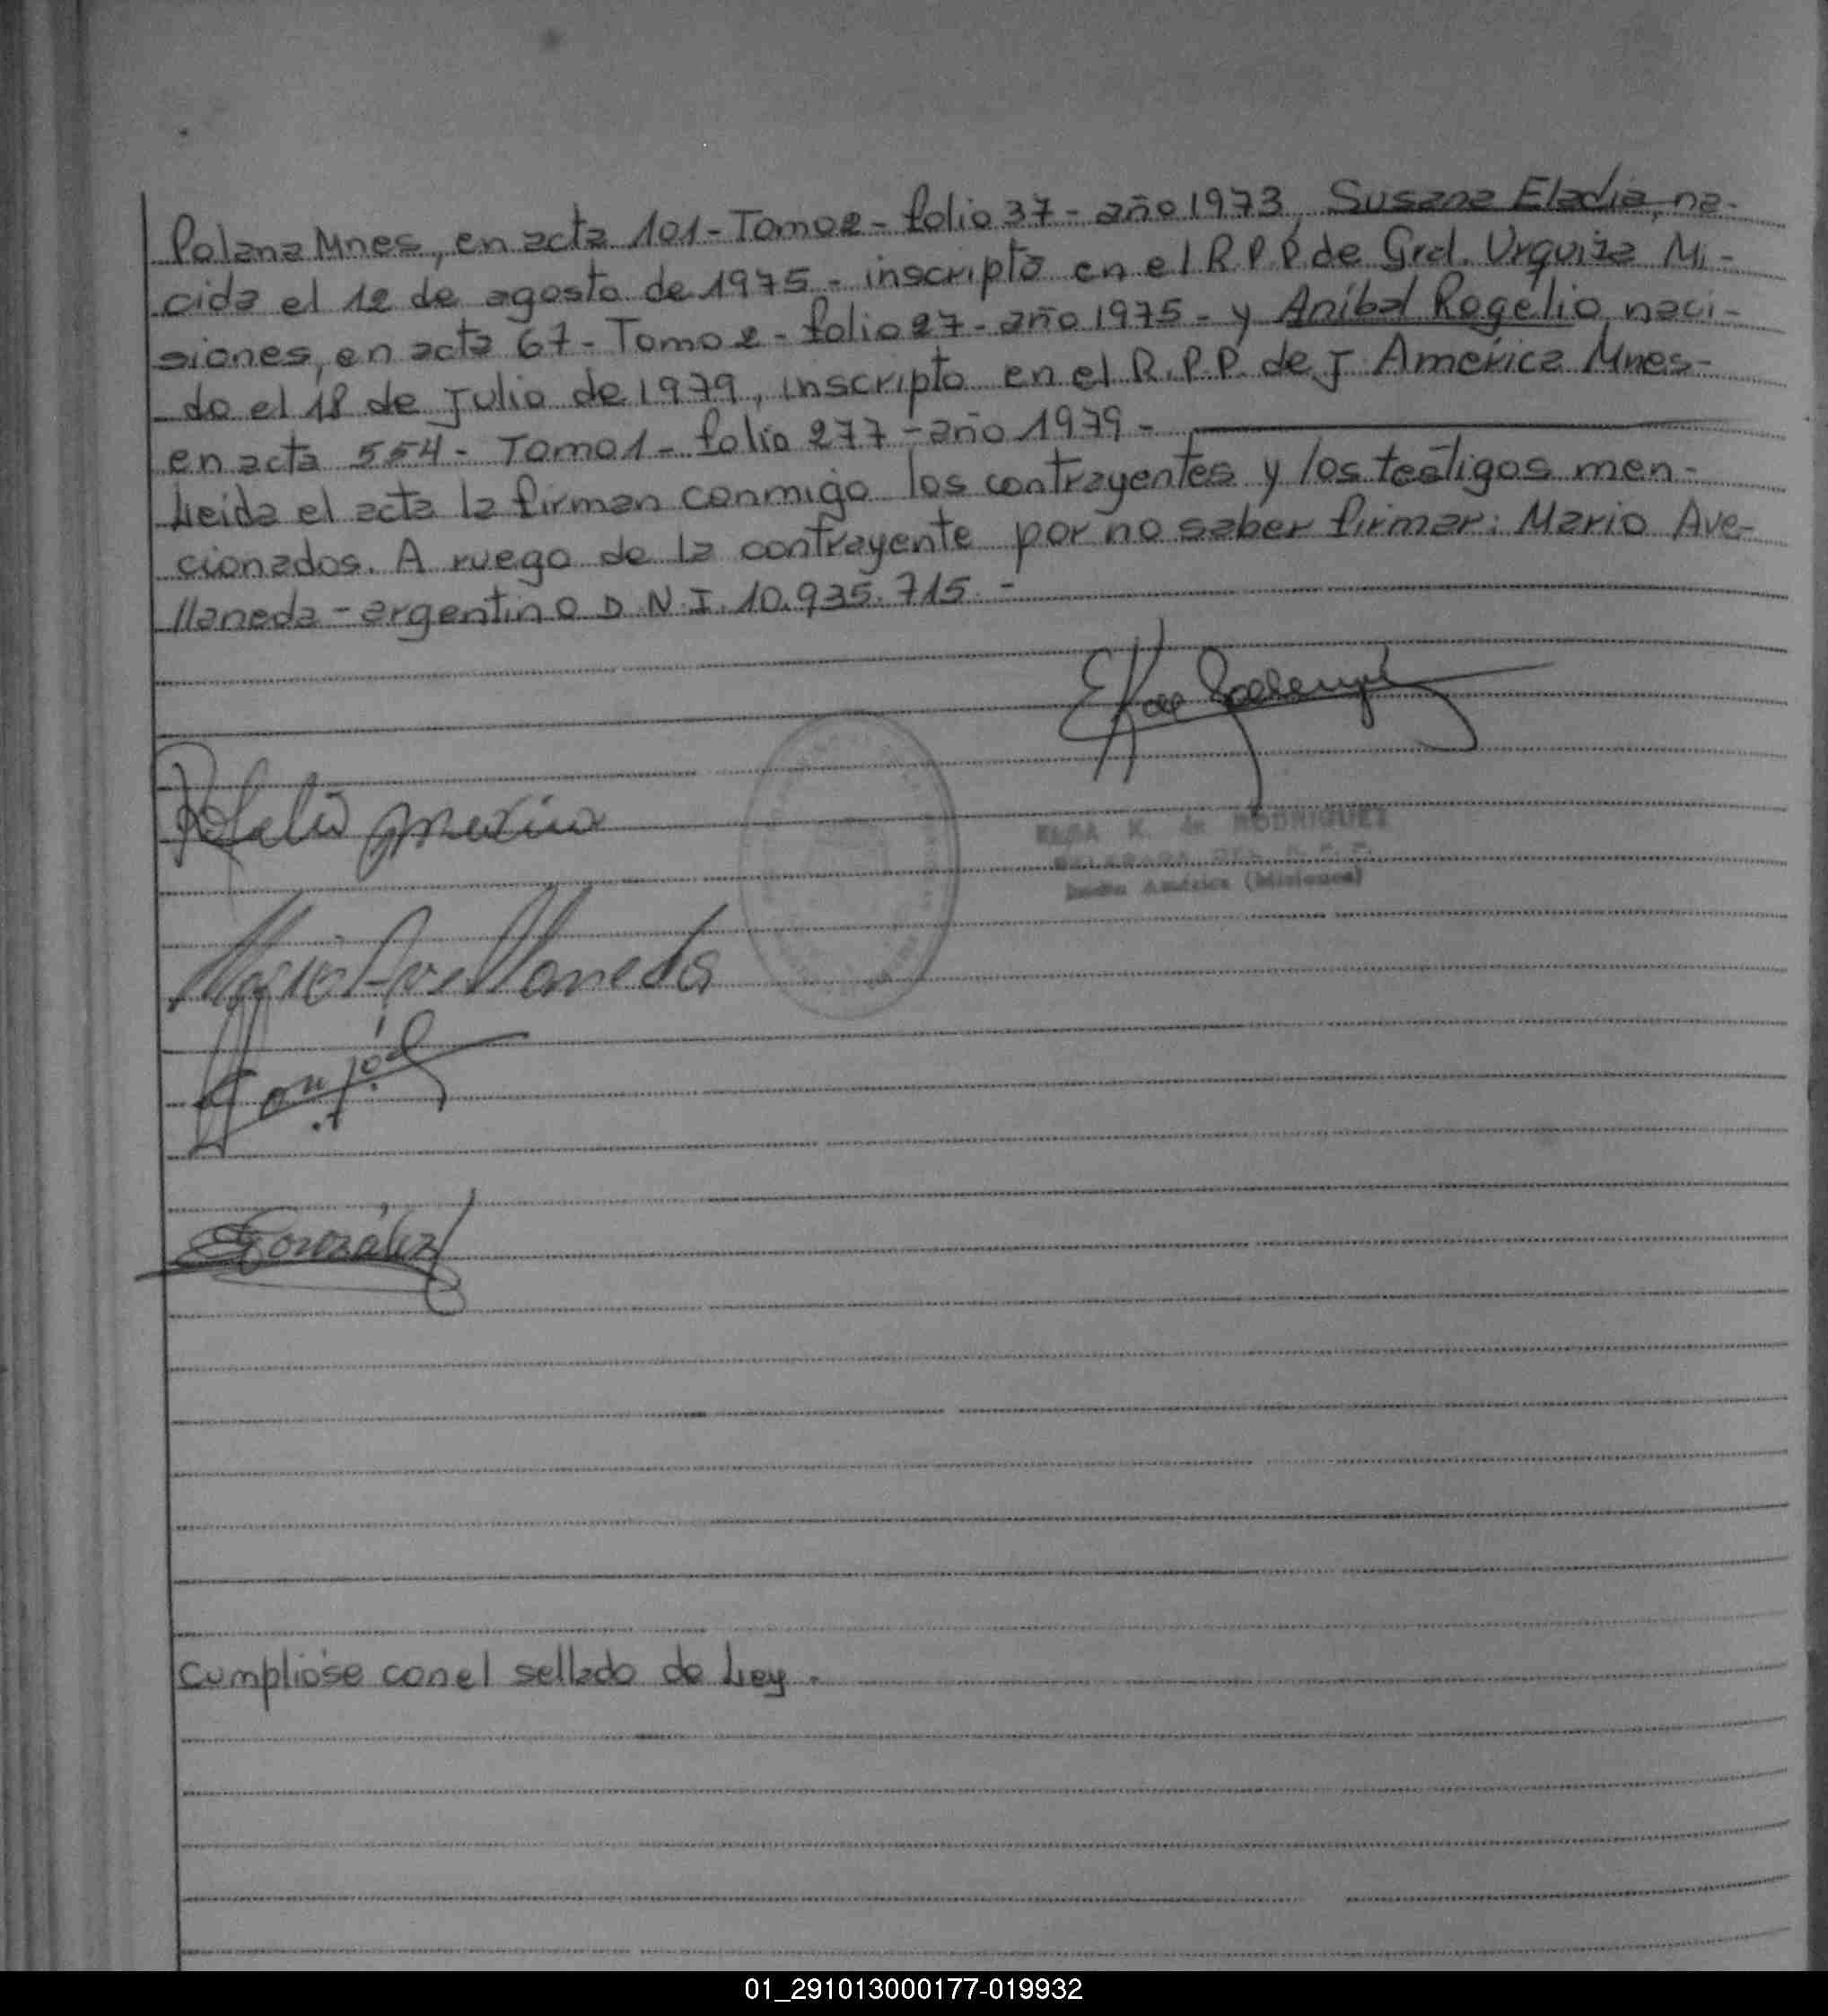 Polana Mnes, en acta 101 - Tomo 2 - folio 37 - año 1973, Susana Eladia, na-
cida el 12 de agosto de 1975 - inscripta en el R.P.P. de Gral. Urquiza Mi-
siones, en acta 67 - Tomo 2 - folio 27 - año 1975 - y Aníbal Rogelio, naci-
do el 18 de Julio de 1979, inscripto en el R.P.P. de J. América Mnes-
en acta 554 - Tomo 1 - folio 277 - año 1979 -
Leida el acta la firman conmigo los contrayentes y los testigos men-
cionados. A ruego de la contrayente por no saber firmar: Mario Ave-
llaneda - argentino D.N.I. 10.935.715. -
ELSA K. de RODRIGUEZ
América (Misiones)
Mario Avellaneda
González
Cumplióse con el sellado de Ley.
01_291013000177-019932